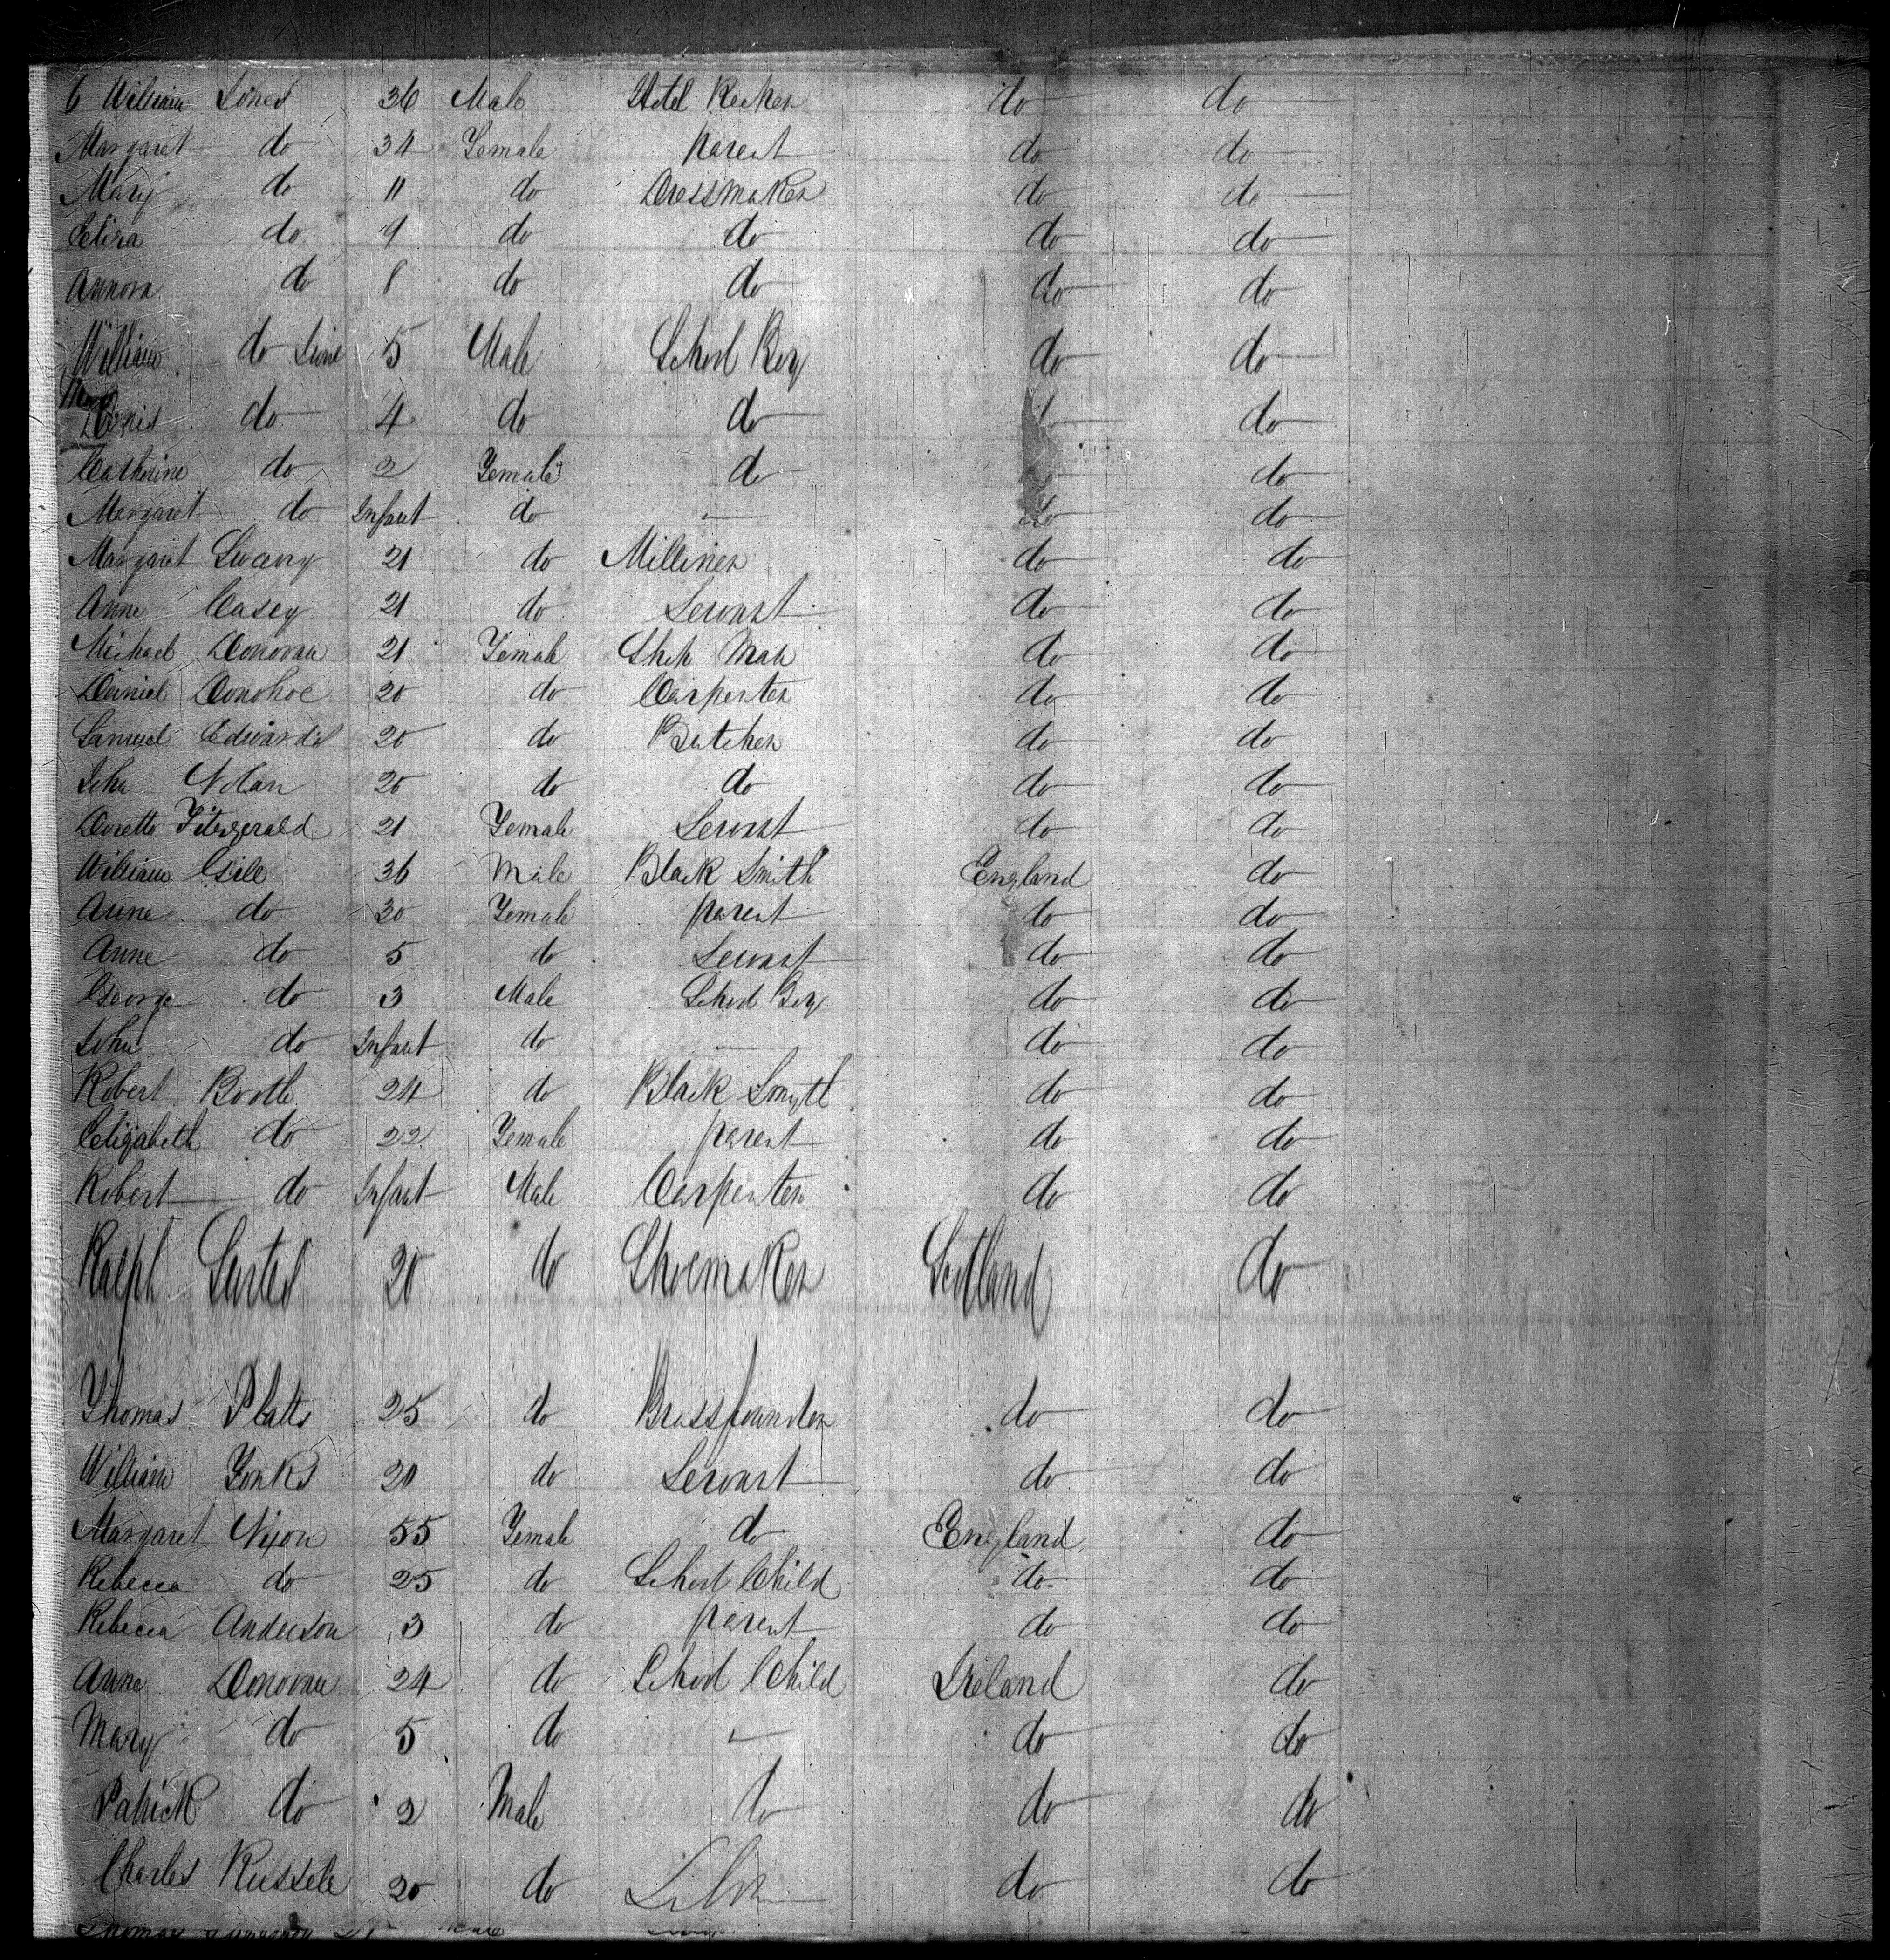 6 William Jones 36 Male Hotel Keeper do do
Margaret do 34 Female parent do do
Mary do 11 do Dressmaker do do
Eliza do 9 do do do do
Annora do 8 do do do do
William do Juni 5 Male School Boy do do
do 4 do do do
Catherine do 2 Female do do
Margaret do Infant do — do do
Margaret Sweeny 21 do Milliner do do
Anne Casey 21 do Servant do do
Michael Donovan 21 Female Ship Mate do do
Daniel Donohoe 20 do Carpenter do do
Samuel Edwards 20 do Butcher do do
John Nolan 20 do do do do
Fitzgerald 21 Female Servant do do
William Gile 36 Male Black Smith England do
Anne do 30 Female parent do do
Anne do 5 do Servant do do
George do 3 Male School Boy do do
John do Infant do — do do
Robert Booth 24 do Black Smyth do do
Elizabeth do 22 Female parent do do
Robert do Infant Male Carpenter do do
Ralph 20 do Shoemaker Scotland do
Thomas Platts 25 do Brassfounder do do
William Yonks 20 do Servant do do
Margaret Nixon 55 Female do England do
Rebecca do 25 do School Child do do
Rebecca Anderson 3 do parent do do
Anne Donovan 24 do School Child Ireland do
Mary do 5 do — do do
Patrick do 2 Male do do do
Charles Russele 20 do do do